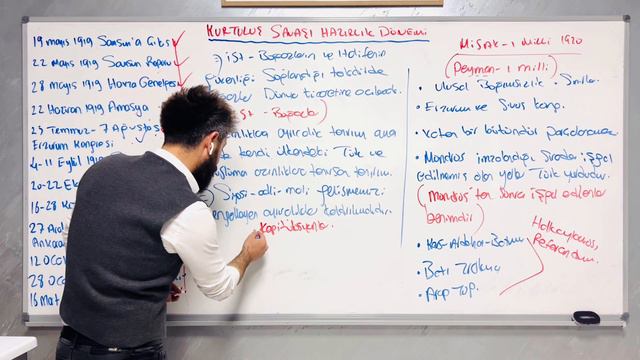 KURTULUŞ SAVAŞI HAZIRLIK DÖNEMİ
19 mayıs 1919 Samsun'a Çıkış
22 mayıs 1919 Samsun Raporu
28 mayıs 1919 Havza Genelgesi
22 Haziran 1919 Amasya
23 Temmuz - 7 Ağustos
Erzurum Kongresi
4-11 Eylül 1919
20-22 Ek
16-28
27 Ara
Ankara
12 Oca
28 Oca
16 Mart
İst - Boğazların ve Halifenin
güvenliği sağlandığı takdirde
Dünya ticaretine açılacak
İst - Boğazlar)
ayrıcalık tanırım ama
kendi ülkendeki Türk ve
azınlıklara tanırsan tanırım.
Siyasi - adli - mali gelişmemizi
engelleyen ayrıcalıklar kaldırılmalıdır.
Kapitülasyonlar.
MİSAK-I MİLLİ 1920
(Peyman-ı milli)
• Ulusal Bağımsızlık - Sınırlar
• Erzurum ve Sivas kong.
• Vatan bir bütündür parçalanamaz
• Mondros imzalandığı sırada işgal
edilmemiş olan yerler Türk yurdudur.
(Mondros'tan sonra işgal edilenler
benimdir)
• Kars-Ardahan-Batum
• Batı Trakya
• Arap top.
Halkoylaması,
Referandum.